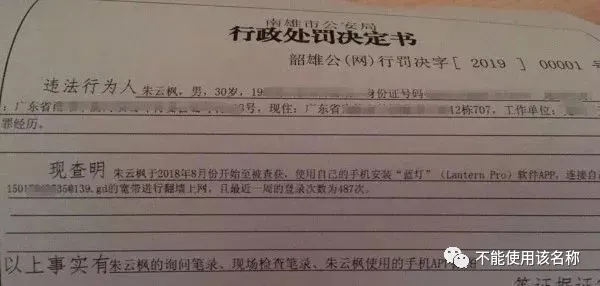 南雄市公安局
行政处罚决定书
韶雄公(网)行罚决字[ 2019 ] 00001 号
违法行为人 朱云枫, 男, 30岁, 19 身份证号码
: 广东省 号, 现住: 广东省 12栋707, 工作单位:
罪经历.
现查明 朱云枫于2018年8月份开始至被查获, 使用自己的手机安装“蓝灯” (Lantern Pro) 软件APP, 连接自
1501 350139.gd的宽带进行翻墙上网, 且最近一周的登录次数为487次.
以上事实有 朱云枫的询问笔录、现场检查笔录、朱云枫使用的手机APP
不能使用该名称